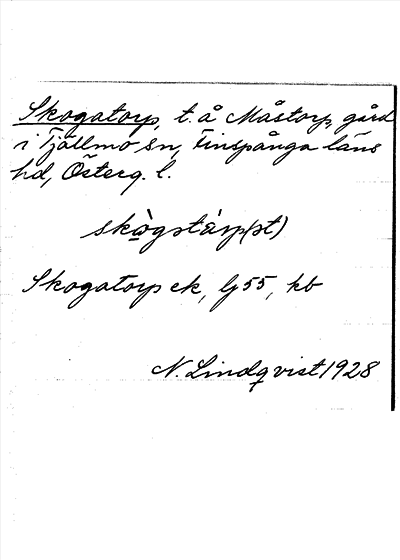 Skogatorp, t. å Måstorp, gård
i Tjällmo sn, Finspånga läns
hd, Österg. l.
skògstàrp(ət)
Skogatorp ek, lj 55, kb
N. Lindqvist 1928